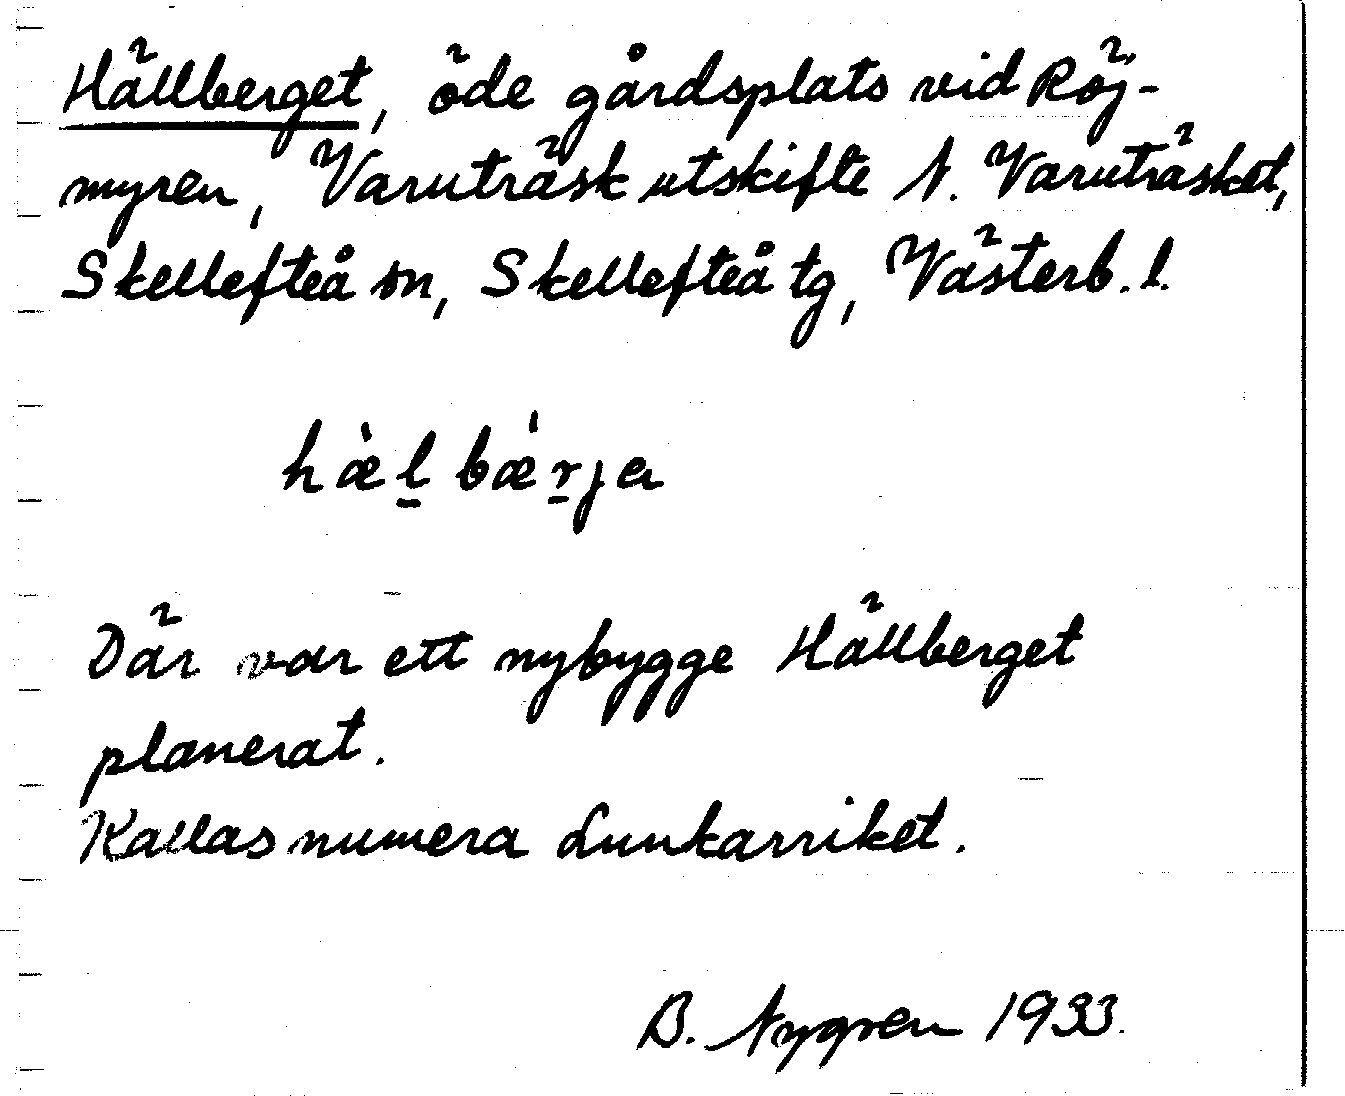 Hällberget, öde gårdsplats vid Röj-
myren, Varuträsk utskifte N. Varuträsket,
Skellefteå sn, Skellefteå tg, Västerb. l.
hæ̀l̠ bǽr̠ja
Där var ett nybygge Hällberget
planerat.
Kallas numera Lunkarriket.
B. Nygren 1933.